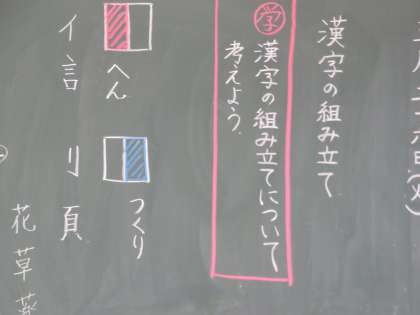 漢字の組み立て
学
漢字の組み立てについて
考えよう。
へん
つくり
イ言
刂頁
花草菜